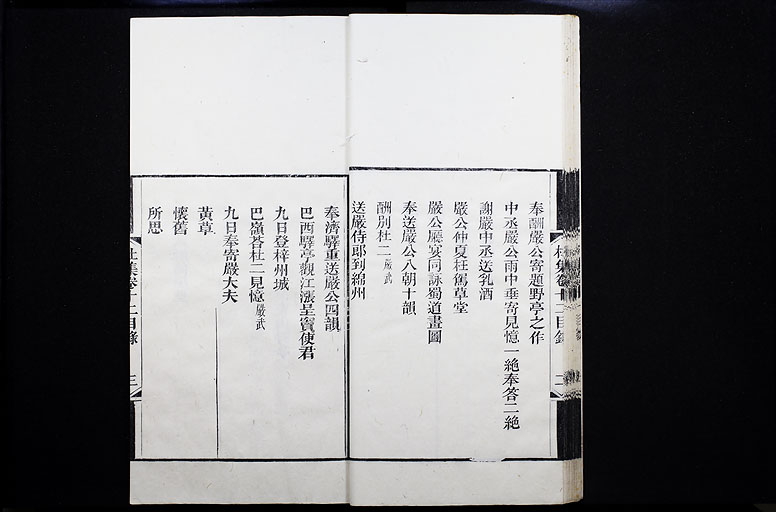 奉酬嚴公寄題野亭之作
中丞嚴公雨中垂寄見憶一絶奉答二絶
謝嚴中丞送乳酒
嚴公仲夏枉駕草堂
嚴公廳宴同詠蜀道畫圖
奉送嚴公入朝十韻
酬別杜二 嚴武
送嚴侍郎到綿州
奉濟驛重送嚴公四韻
巴西驛亭觀江漲呈竇使君
九日登梓州城
巴嶺荅杜二見憶 嚴武
九日奉寄嚴大夫
黃草
懷舊
所思
杜集卷十二目錄 三